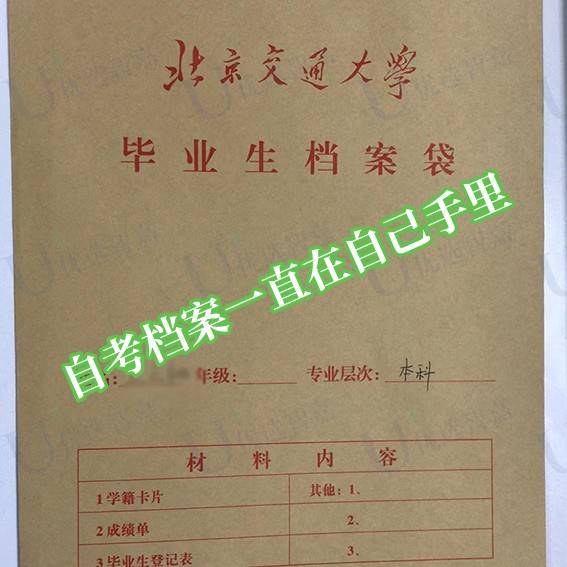 北京交通大學
毕业生档案袋
自考档案一直在自己手里
年级: 专业层次: 本科
材料内容
1 学籍卡片 其他: 1、
2 成绩单 2、
3 毕业生登记表 3、